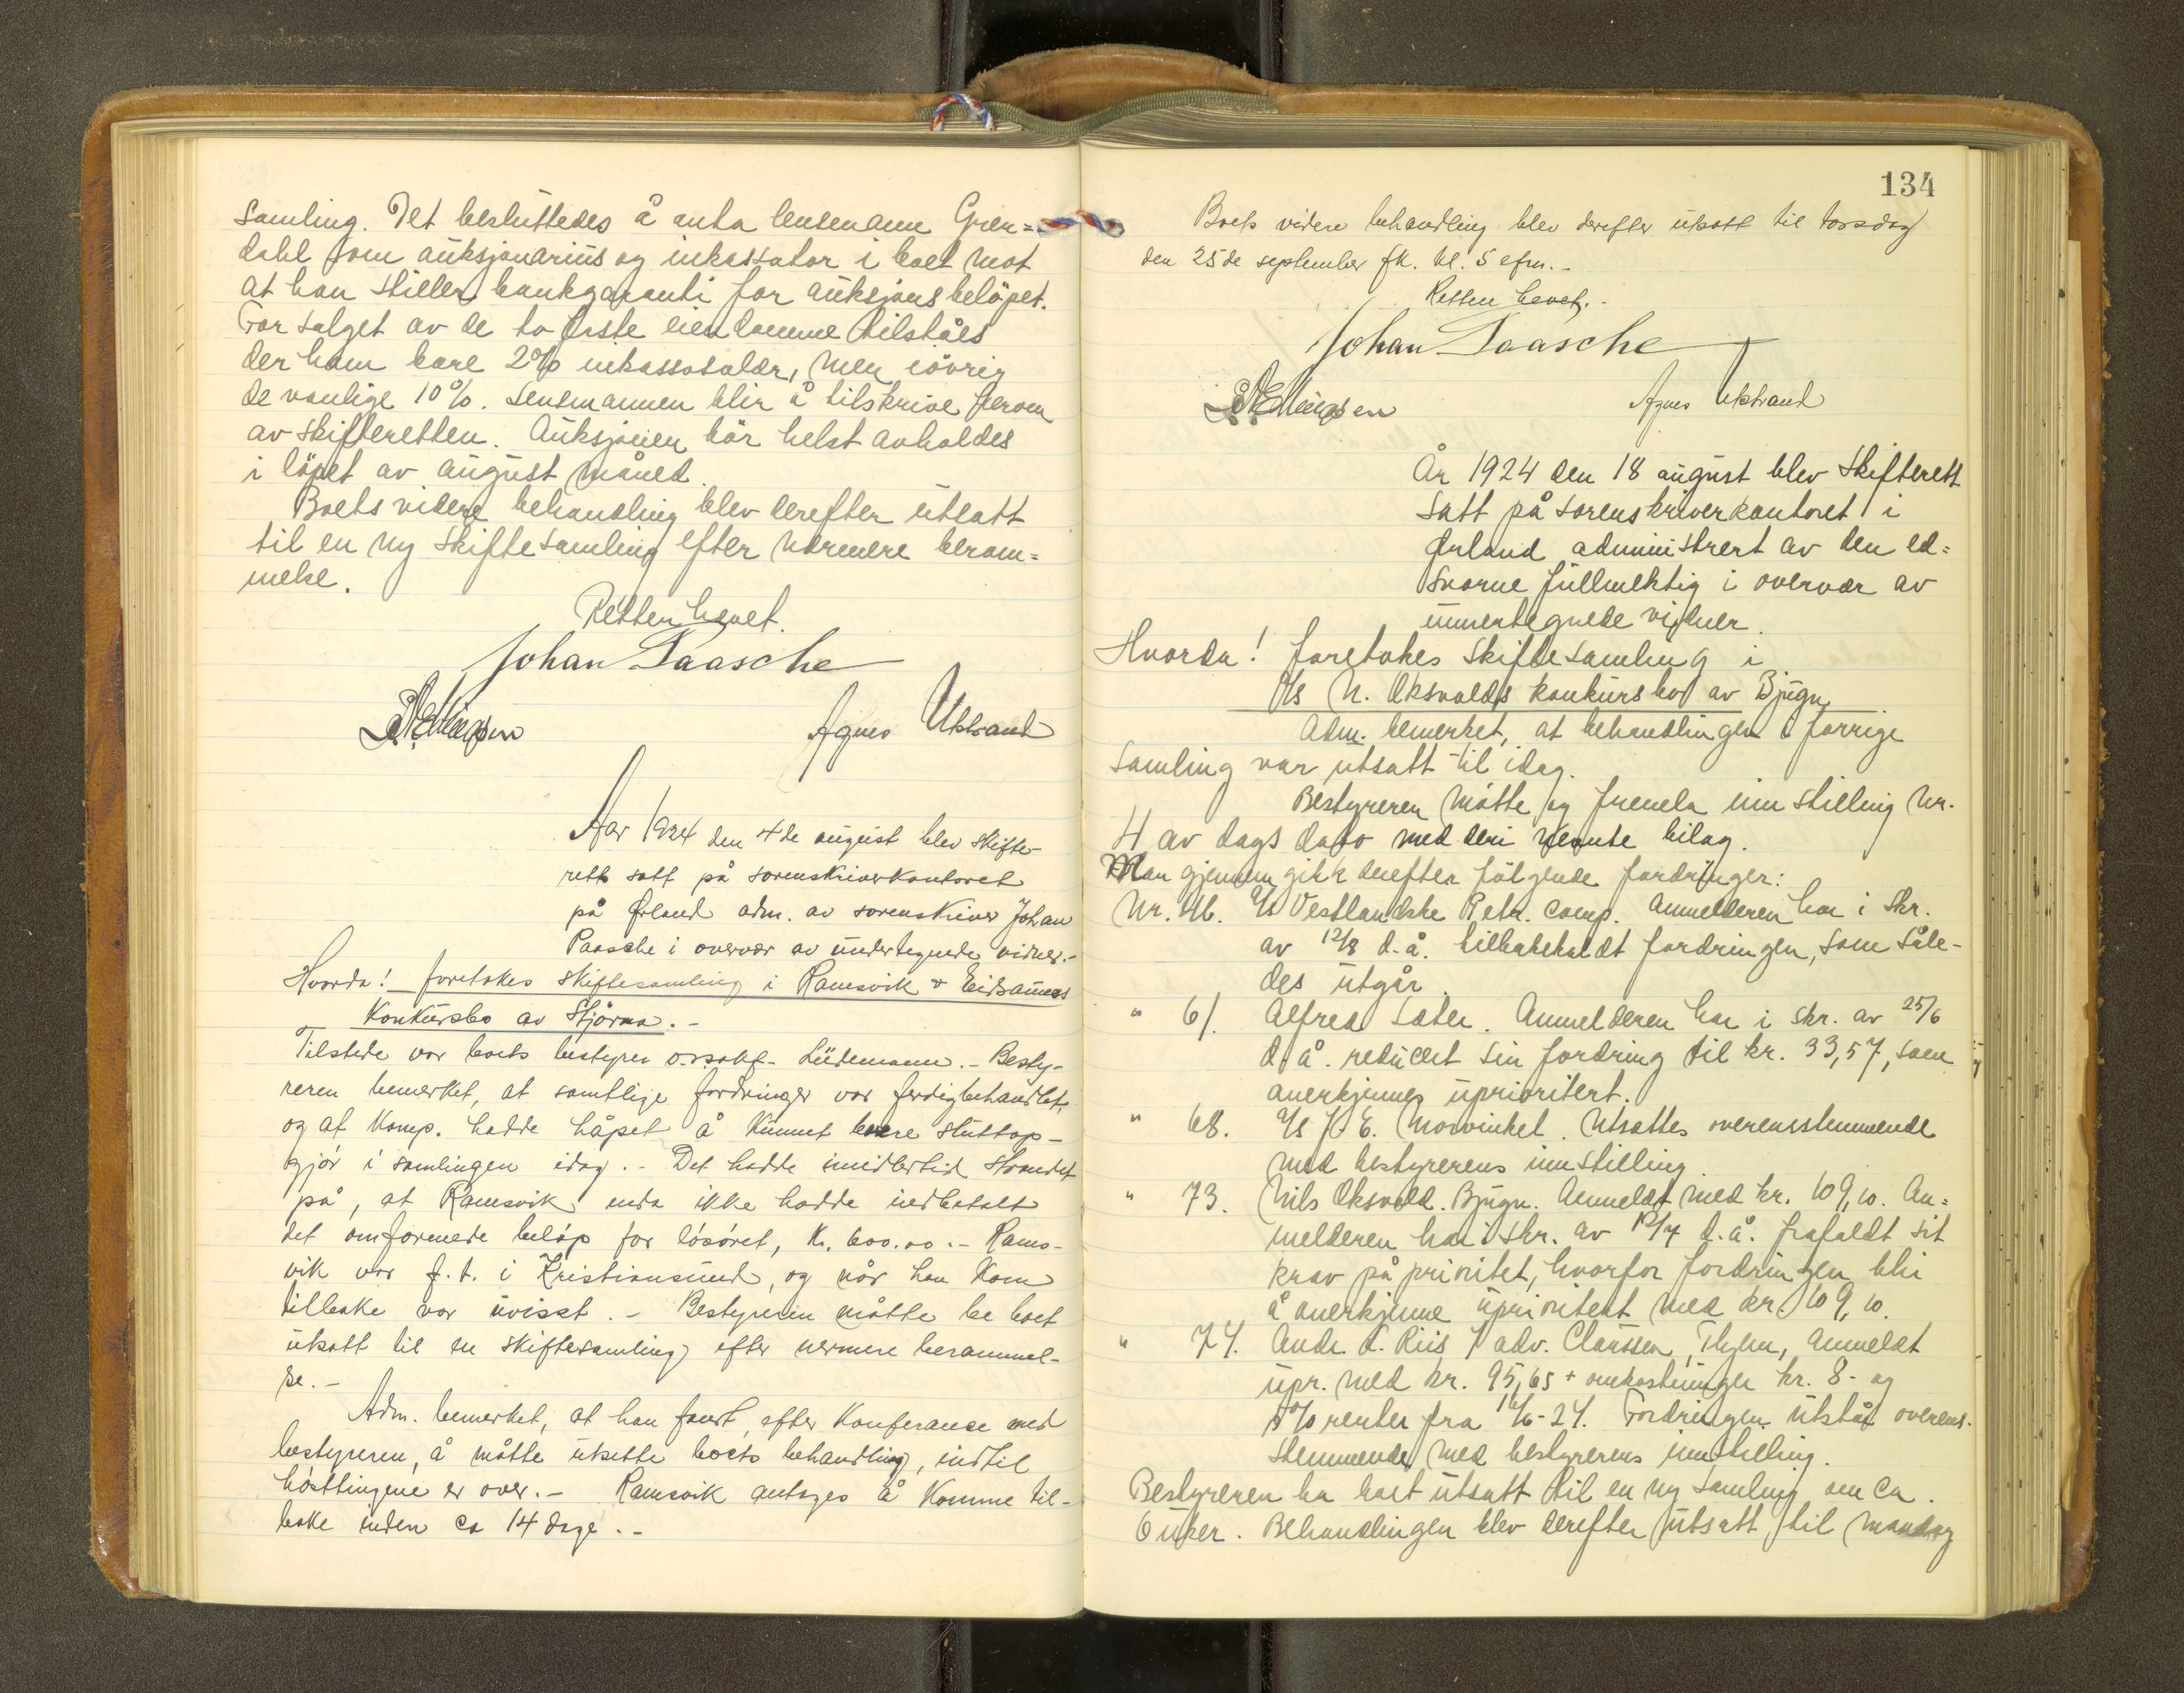 samling. Det besluttedes å anta lensmann Gren=
dahl som auksjonarius og inkassator i boet mot
at han stiller bankgaranti for auksjonsbeløpet.
For salget av de to faste eiendomme tilståes
der ham bare 2% inkassosalær, men iøvrig
de vanlige 10%. Lensmannen blir å tilskrive herom
av skifteretten. Auksjonen bör helst avholdes
i löpet av august måned.
Boets videre behandling blev derefter utsatt
til en ny skiftesamling efter nærmere beram=
melse.
Retten hevet.
Johan Paasche
Ellingsen
Agnes Ukstrand
Aar 1924 den 4de august blev skifte-
rett satt på sorenskriverkontoret
på Ørland adm. av sorenskriver Johan
Paasche i overvær av undertegnede vidner.-
Hvorda! foretokes skiftesamling i Ramsvik & Eidsaunes
Konkursbo av Stjørna.-
Tilstede var boets bestyrer o.r.sakf. Lüdemann.- Besty-
reren bemerket, at samtlige fordringer var ferdigbehandlet,
og at Komp. hadde håpet å kunnet være sluttop-
gjör i samlingen idag.- Det hadde imidlertid strandet
på, at Ramsvik enda ikke hadde indbetalt
det omforenede belöp for lösöret, Kr. 600.00.- Rams-
vik var f.t. i Kristiansund, og når han kom
tilbake var uvisst.- Bestyreren måtte be boet
utsatt til en skiftesamling efter nermere berammel-
se.-
Adm. bemerket, at han fandt, efter Konferanse med
bestyreren, å måtte utsette boets behandling, indtil
hösttingene er over.- Ramsvik antages å komme til-
bake inden ca 14 dage.-
134
Boets videre behandling blev derefter utsatt til torsdag
den 25de september fk. kl. 5 efm.-
Retten hevet.-
Johan Paasche
Ellingsen
Agnes Ukstrand
År 1924 den 18 august blev skifterett
satt på sorenskriverkontoret i
Ørland administrert av den ed=
svorne fullmektig i overvær av
unnertegnede vidner.
Hvorda! foretokes skiftesamling i
A/s N. Oksvolds konkursbo av Bjugn
Adm. bemerket, at behandlingen i forrige
samling var utsatt til idag.
Bestyreren mötte og fremla innstilling nr.
4 av dags dato med deri nevnte bilag.
Man gjennemgikk derefter fölgende fordringer:
Nr. 46. A/s Vestlandske Petr. Comp. Anmelderen har i skr.
av 12/8 d.å. tilbakekaldt fordringen, som såle-
des utgår.
" 61. Alfred Sæter. Anmelderen har i skr. av 25/6
d.å. redusert sin fordring til kr. 33,57, som
anerkjennes uprioritert.
" 68. A/s J. E. Mowinkel. Utsattes overensstemmende
med bestyrerens innstilling.
" 73. Nils Oksvold. Bjugn. Anmeldt med kr. 109,10. An=
melderen har i skr. av 12/7 d.å. frafaldt sit
krav på prioritet, hvorfor fordringen blir
å anerkjenne uprioritert med kr. 109,10.
" 74. Andr. K. Riis v/ adv. Claussen, Thjem, anmeldt
upr. med kr. 95,65 + omkostninger kr. 8- og
5% renter fra 16/6-24. Fordringen utstår overens-
stemmende med bestyrerens innstilling.
Bestyreren ba boet utsatt til en ny samling om ca.
6 uker. Behandlingen blev derefter utsatt til mandag